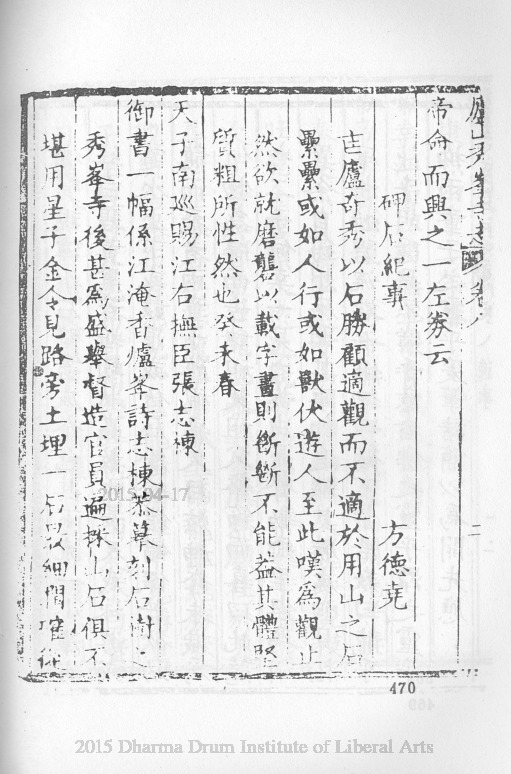 廬山秀峯寺志 卷八 二
帝命而興之一左券云
碑石紀事 方德堯
匡廬奇秀以石勝顧適觀而不適於用山之石
纍纍或如人行或如獸伏遊人至此嘆為觀止
然欲就磨礱以載字畫則斷斷不能蓋其體堅
質粗所性然也癸未春
天子南巡賜江右撫臣張志棟
御書一幅係江淹香爐峯詩志棟恭摹刻石樹之
秀峯寺後甚為盛舉督造官員遍採山石俱不
堪用星子金令見路旁土埋一石
470
2015-04-17
2015 Dharma Drum Institute of Liberal Arts